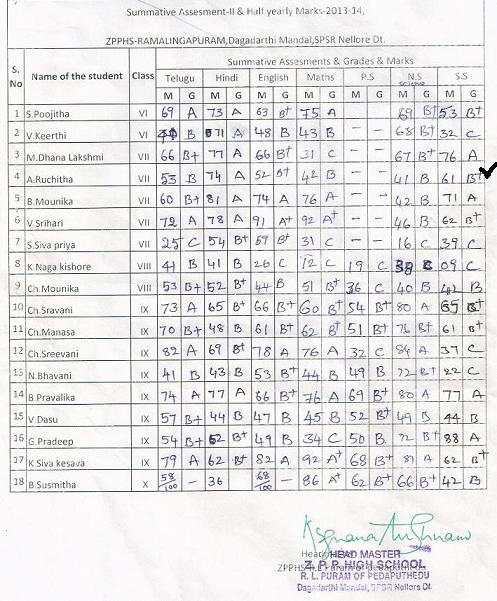 Summative Assesment-II & Half yearly Marks-2013-14,
ZPPHS-RAMALINGAPURAM,Dagadarthi Mandal,SPSR Nellore Dt.
S. No Name of the student Class Summative Assesments & Grades & Marks
Telugu Hindi English Maths P.S N.S science S.S
M G M G M G M G M G M G M G
1 S.Poojitha VI 69 A 73 A 63 B+ 75 A 69 B+ 53 B+
2 V.Keerthi VI B 71 A 48 B 43 B - - 68 B+ 32 C
3 M.Dhana Lakshmi VII 66 B+ 77 A 66 B+ 31 C - - 67 B+ 76 A
4 A.Ruchitha VII 53 B 74 A 52 B+ 42 B - - 41 B 61 B+
5 B.Mounika VII 60 B+ 81 A 74 A 76 A - - 42 B 71 A
6 V Srihari VII 72 A 78 A 91 A+ 92 A+ - - 46 B 62 B+
7 S.Siva priya VII 25 C 54 B+ 57 B+ 31 C - - 16 C 39 C
8 K.Naga kishore VIII 41 B 41 B 26 C 12 C 19 C C 09 C
9 Ch.Mounika VIII 53 B+ 52 B+ 44 B 51 B+ 36 C 40 B 42 B
10 Ch.Sravani IX 73 A 65 B+ 66 B+ 60 B+ 54 B+ 80 A B+
11 Ch.Manasa IX 70 B+ 48 B 61 B+ 62 B+ 51 B+ 76 B+ 61 B+
12 Ch.Sreevani IX 82 A 69 B+ 78 A 76 A 32 C 84 A 37 C
13 N.Bhavani IX 41 B 43 B 53 B+ 44 B 49 B 72 B+ 22 C
14 B.Pravalika IX 74 A 77 A 66 B+ 76 A 69 B+ 80 A 77 A
15 V.Dasu IX 57 B+ 44 B 47 B 45 B 52 B+ 49 B 44 B
16 G.Pradeep IX 54 B+ 52 B+ 49 B 34 C 50 B 72 B+ 88 A
17 K Siva kesava IX 79 A 62 B+ 82 A 92 A+ 68 B+ 81 A 62 B+
18 B.Susmitha X 58/100 - 36 68/100 - 86 A+ 62 B+ 66 B+ 42 B
HEAD MASTER
Z. P. P. HIGH SCHOOL
R. L. PURAM OF PEDAPUTHEDU
Dagadarthi Mandal, SPSR Nellore Dt.